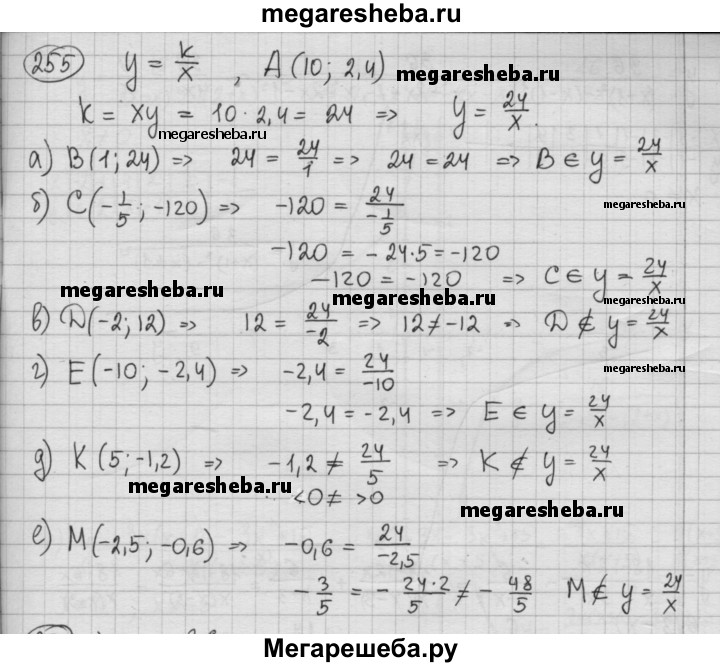 megaresheba.ru
255 y = k/x , A (10; 2,4) megaresheba.ru
k = xy = 10 · 2,4 = 24 => y = 24/x.
megaresheba.ru
а) B (1; 24) => 24 = 24/1 => 24 = 24 => B ∈ y = 24/x
б) C (-1/5; -120) => -120 = 24/(-1/5) megaresheba.ru
-120 = - 24·5 = -120
-120 = -120 => C ∈ y = 24/x
megaresheba.ru megaresheba.ru
в) D (-2; 12) => 12 = 24/-2 => 12 ≠ -12 => D ∉ y = 24/x
г) E (-10; -2,4) => -2,4 = 24/-10 megaresheba.ru
-2,4 = -2,4 => E ∈ y = 24/x
д) K (5; -1,2) => -1,2 ≠ 24/5 => K ∉ y = 24/x
megaresheba.ru <0 ≠ >0
megaresheba.ru
е) M (-2,5; -0,6) => -0,6 = 24/-2,5
-3/5 = - 24·2/5 ≠ - 48/5 M ∉ y = 24/x
Мегарешеба.ру